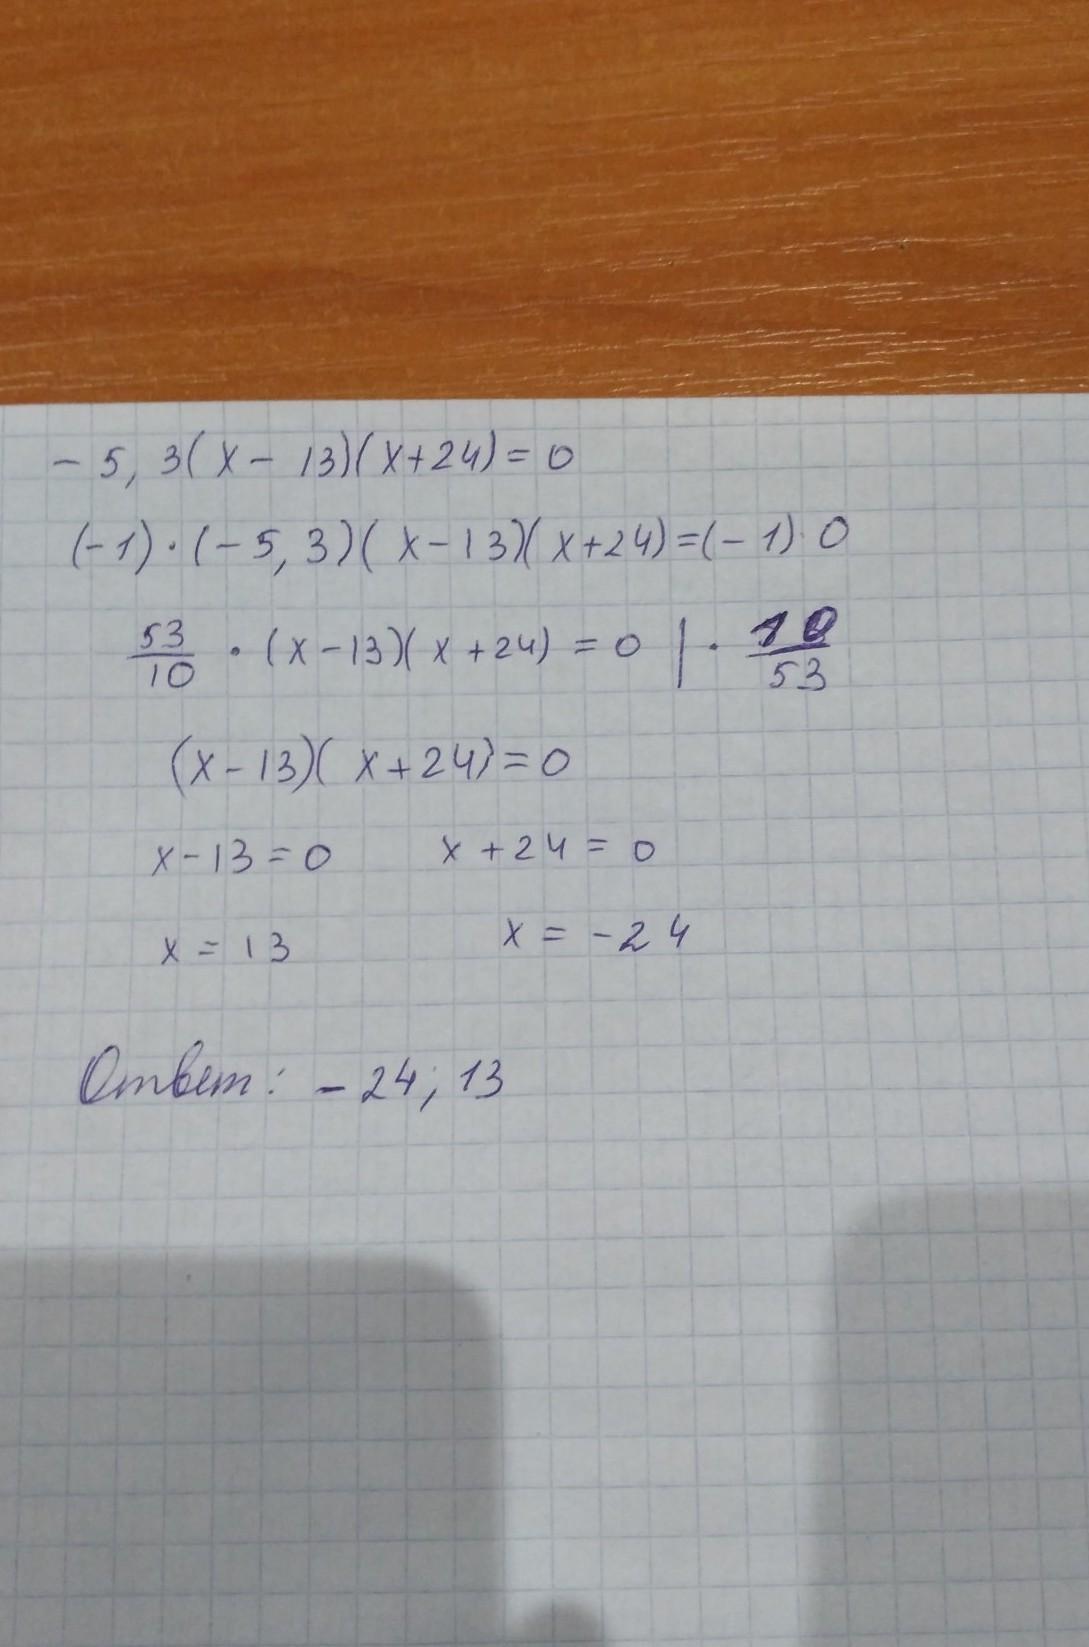 - 5, 3(x - 13)(x+24) = 0
(-1)·(-5, 3)(x-13)(x+24)=(-1)·0
53/10 · (x-13)(x+24) = 0 | · 10/53
(x-13)(x+24)=0
x-13=0 x+24=0
x = 13 x = -24
Ответ: -24; 13